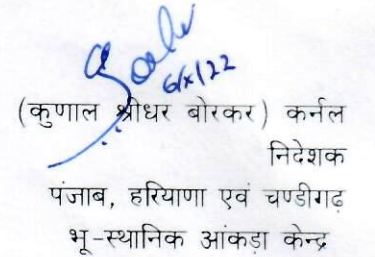 6/x/22
(कुणाल श्रीधर बोरकर) कर्नल
निदेशक
पंजाब, हरियाणा एवं चण्डीगढ़
भू-स्थानिक आंकड़ा केन्द्र